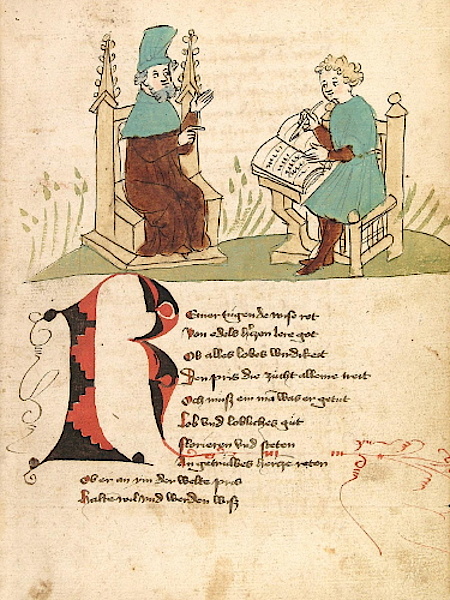 Reiner tugende wise rot
Von edels herzen lere got
Ob alles lobes wirdikeit
Den pris die zucht alleine treit
Och muß ein man was er getut
Lob und lobliches gut
florieren und steten
An getruwes herze reten
Ob er an im der welte pris
Halten wil und werden wiß